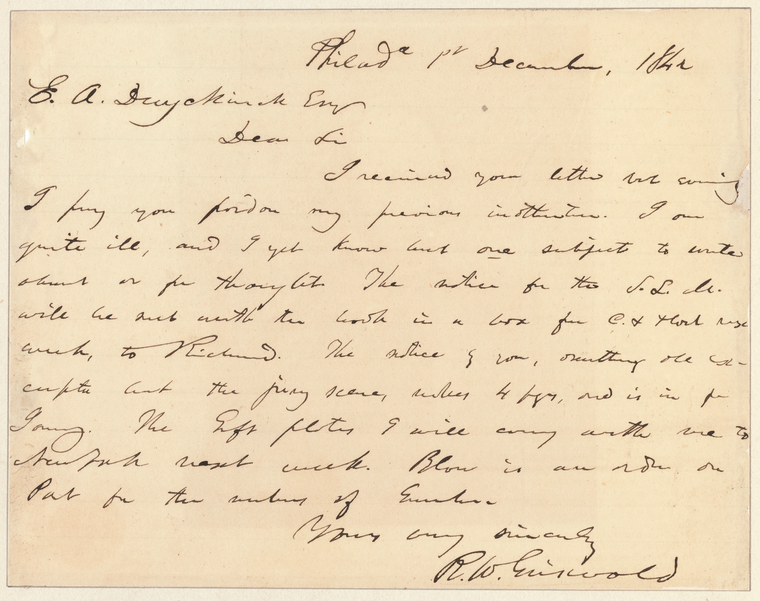 Philad^a 1st December, 1842
E. A. Duyckinck Esq
Dear Sir
I received your letter last evening
I pray you pardon my previous inattention. I am
quite ill, and I yet know but one subject to write
about or for thought. The notice for the S. L. M.
will be sent with the book in a box for C. & next
week, to Richmond. The notice of you, omitting all ex-
cerpta but the jury scene, makes 4 pgs, and is in for
The Gift plates I will carry with me to
New York next week. Below is an order on
Post for the numbers of
Yours very sincerely
R. W. Griswold